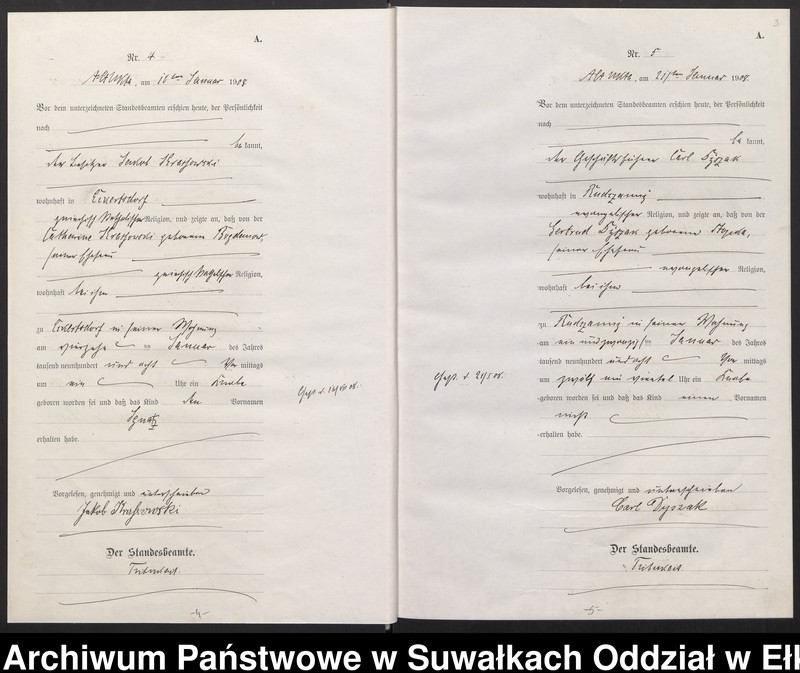 A.
Nr. 4
Alt Ukta, am 16ten Januar 1908
Vor dem unterzeichneten Standesbeamten erschien heute, der Persönlichkeit
nach
bekannt,
der Besitzer Jakob Krassowski
wohnhaft in Eckertsdorf
griechisch katholischer Religion, und zeigte an, daß von der
Catharina Krassowski geborenen
seiner Ehefrau
griechisch katholischer Religion,
wohnhaft bei ihm
zu Eckertsdorf in seiner Wohnung
am Januar des Jahres
tausend neunhundert und acht Vor mittags
um ein Uhr ein Knabe
geboren worden sei und daß das Kind den Vornamen
Ignatz
erhalten habe.
Vorgelesen, genehmigt und unterschrieben
Jakob Krassowski
Der Standesbeamte.
-4-
3
A.
Nr. 5
Alt Ukta, am 21ten Januar 1908.
Vor dem unterzeichneten Standesbeamten erschien heute, der Persönlichkeit
nach
bekannt,
der Geschäftsführer Carl Dyzak
wohnhaft in Rudczanny
evangelischer Religion, und zeigte an, daß von der
Gertrud Dyzak geborenen
seiner Ehefrau
evangelischer Religion,
wohnhaft bei ihm
zu Rudczanny in seiner Wohnung
am ein und zwanzigsten Januar des Jahres
tausend neunhundert und acht Vor mittags
um zwölf ein viertel Uhr ein Knabe
geboren worden sei und daß das Kind einen Vornamen
nicht
erhalten habe.
Vorgelesen, genehmigt und unterschrieben
Carl Dyzak
Der Standesbeamte.
-5-
Archiwum Państwowe w Suwałkach Oddział w Ełk